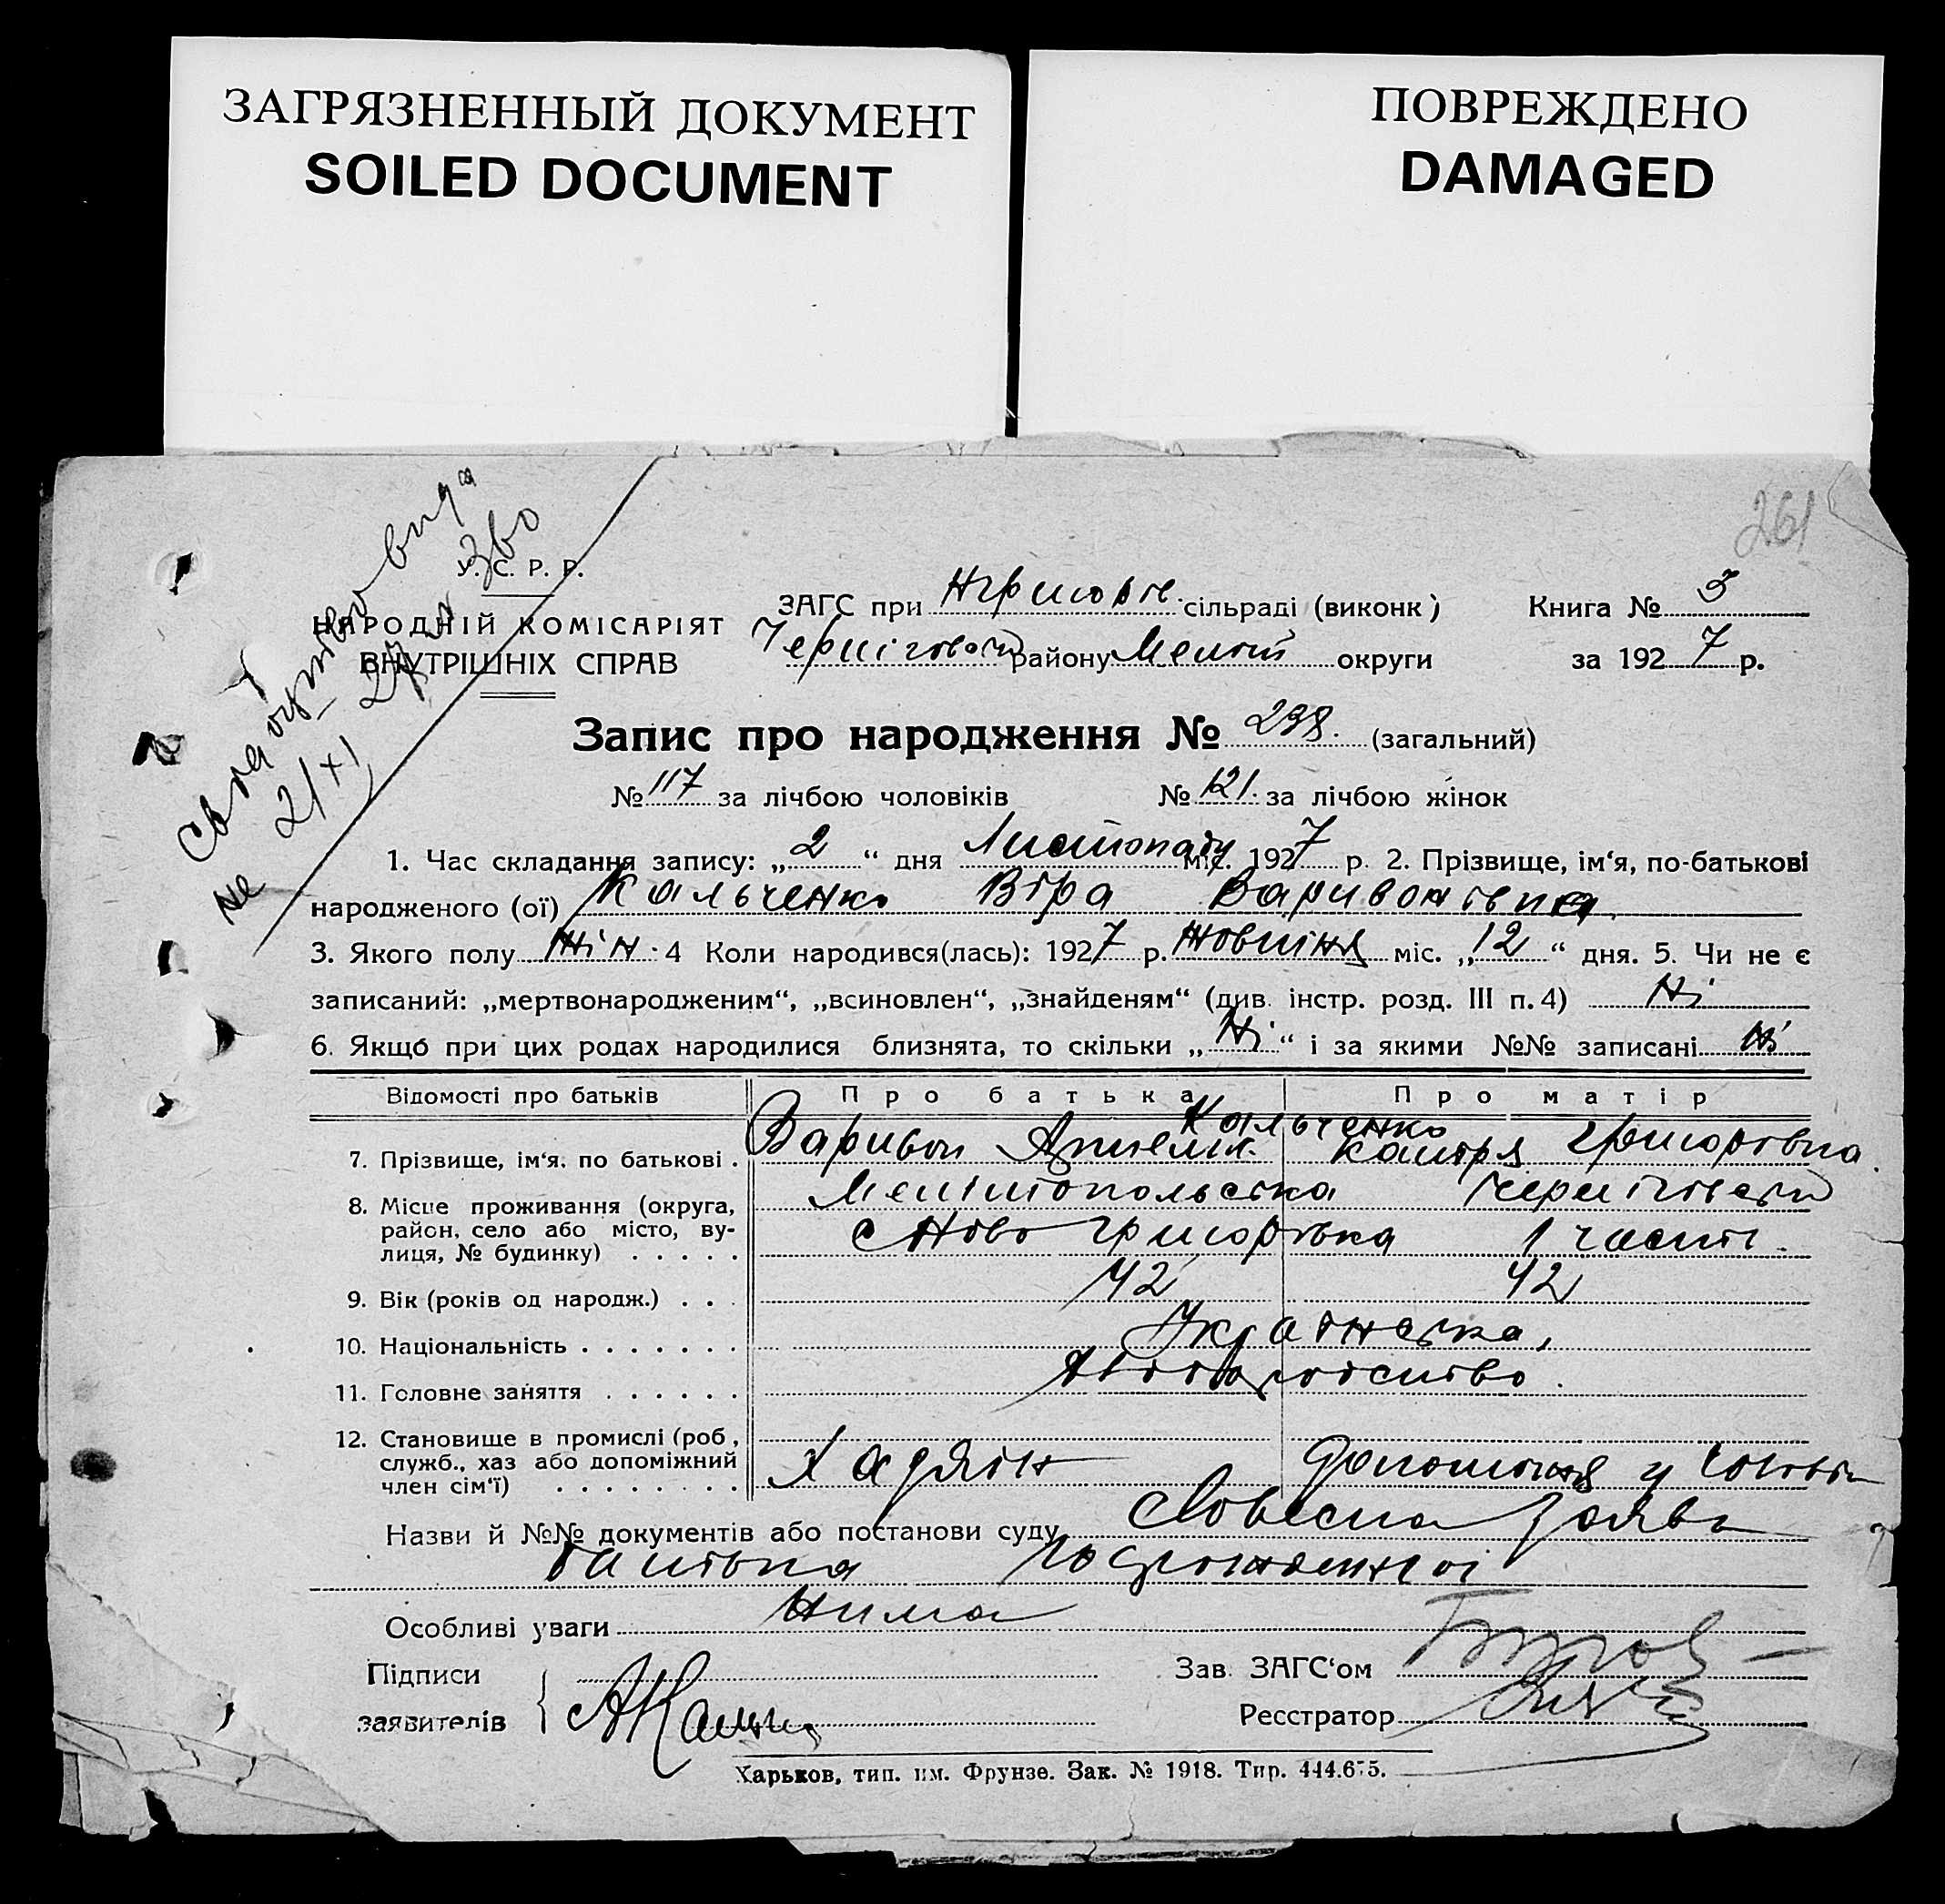 ЗАГРЯЗНЕННЫЙ ДОКУМЕНТ
SOILED DOCUMENT
ПОВРЕЖДЕНО
DAMAGED
261
У. С. Р. Р.
НАРОДНІЙ КОМІСАРІЯТ
ВНУТРІШНІХ СПРАВ
21/XI 27 р
ЗАГС при сільраді (виконк)
району Меліт округи
Книга № 3
за 1927 р.
Запис про народження № 238. (загальний)
№ 117 за лічбою чоловіків № 121. за лічбою жінок
1. Час складання запису: „2“ дня Листопаду міс. 1927 р. 2. Прізвище, ім‘я, по-батькові
народженого (ої) Кальченко Віра Варивонівна
3. Якого полу жін. 4 Коли народився(лась): 1927 р. Жовтня міс. „12“ дня. 5. Чи не є
записаний: „мертвонародженим“, „всиновлен“, „знайденям“ (див. інстр. розд. III п. 4) Ні
6. Якщо при цих родах народилися близнята, то скільки „Ні“ і за якими №№ записані Ні
Відомості про батьків Про батька Про матір
Кальченко
7. Прізвище, ім‘я, по батькові . Варивон Катря Григоровна
8. Місце проживання (округа, Мелітопольська
район, село або місто, ву- с Ново Григорівка 1 части.
лиця, № будинку) . . . . .
9. Вік (років од народж.) . . . 42 42
10. Національність . . . . . . . Українська,
11. Головне заняття . . . . . .
12. Становище в промислі (роб,
служб., хаз або допоміжний Хазяїн
член сім‘ї) . . . . . . . .
Назви й №№ документів або постанови суду Словесна заява
батька
Особливі уваги Нима
Підписи
заявителів
Зав. ЗАГС‘ом
Реєстратор
Харьков, тип. им. Фрунзе. Зак. № 1918. Тир. 444.675.